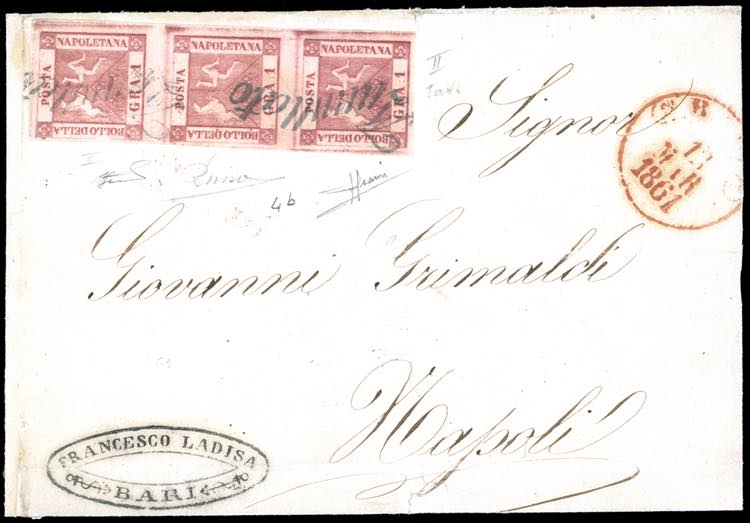 NAPOLETANA NAPOLETANA NAPOLETANA
POSTA GRA 1 POSTA GRA 1 POSTA GRA 1
BOLLO DELLA BOLLO DELLA BOLLO DELLA
Annullato Annullato
II
I
4b
Signor
13
MAR
1861
Giovanni Grimaldi
Napoli
FRANCESCO LADISA
BARI